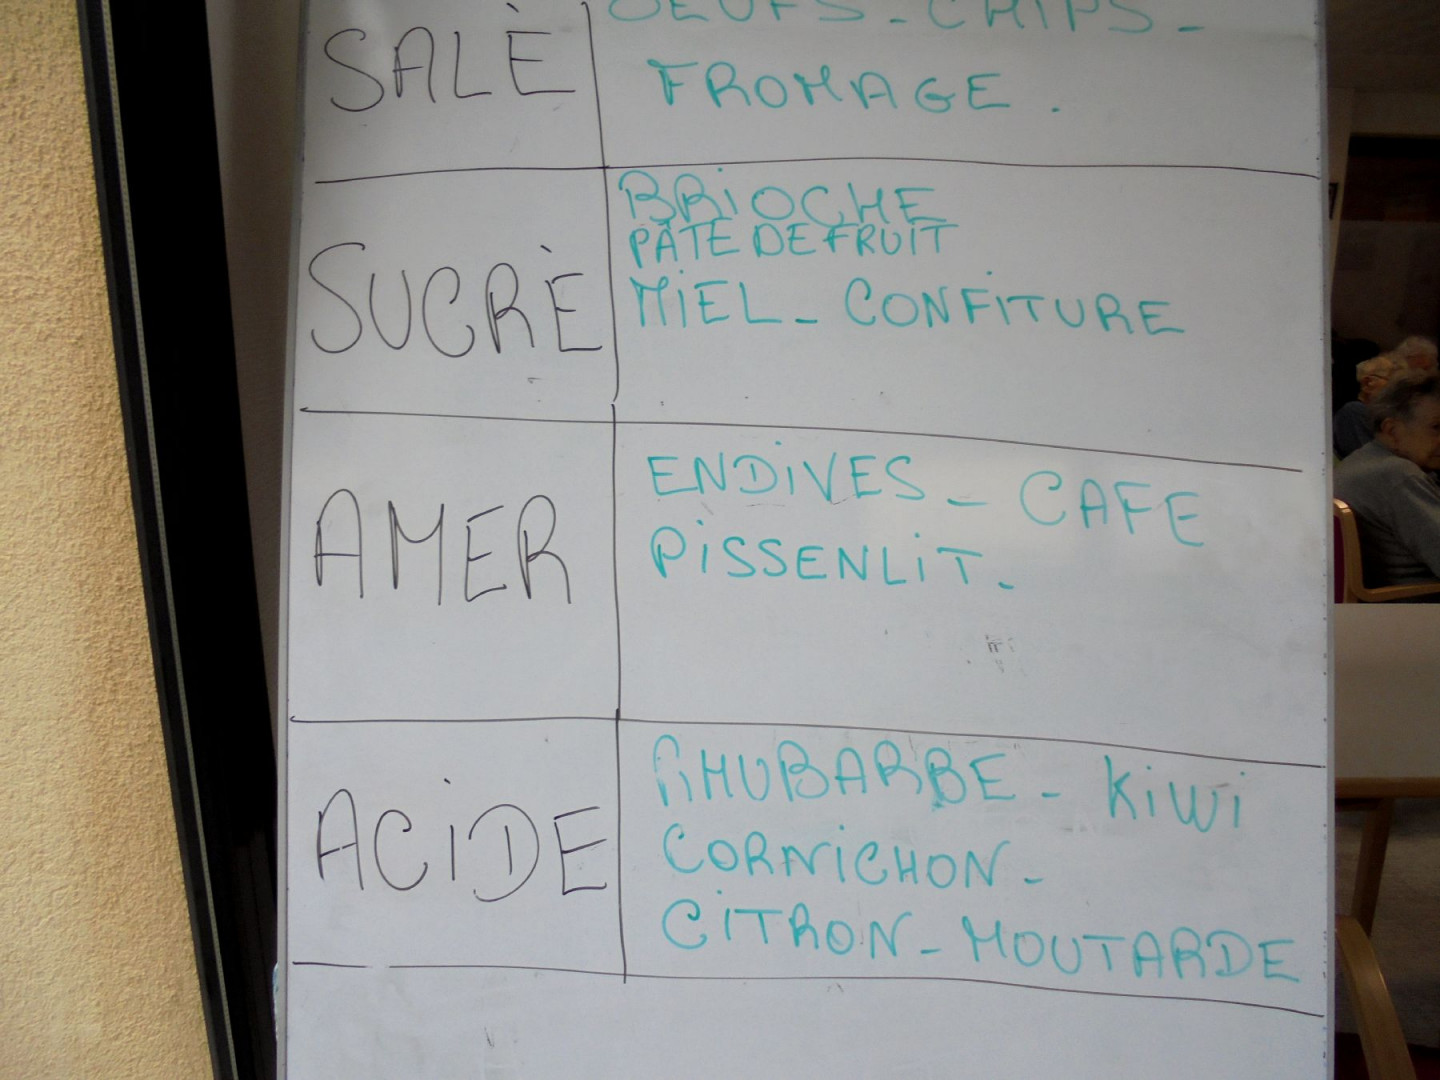 SALÉ
OEUFS - CHIPS -
FROMAGE .
SUCRÉ
BRIOCHE
PÂTE DE FRUIT
MIEL - CONFITURE
AMER
ENDIVES - CAFE
PISSENLIT -
ACIDE
RHUBARBE - KIWI
CORNICHON -
CITRON - MOUTARDE